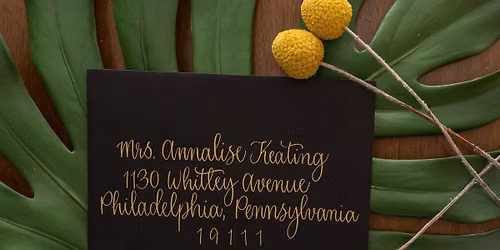 Mrs. Annalise Keating
1130 Whitley Avenue
Philadelphia, Pennsylvania
19111